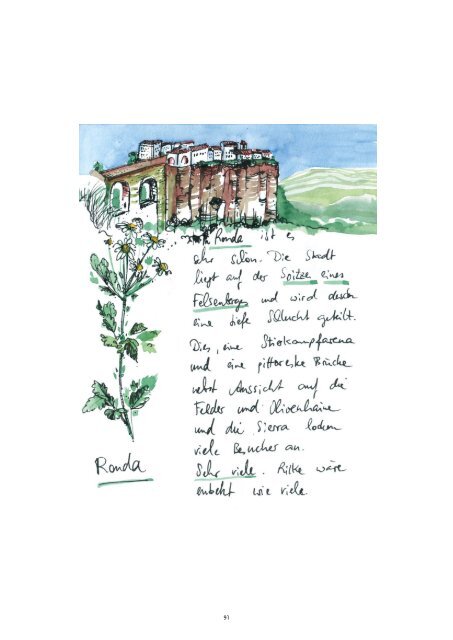 Ronda ist es
sehr schön. Die Stadt
liegt auf der Spitze eines
Felsenberges und wird durch
eine tiefe Schlucht geteilt.
Dies, eine Stierkampfarena
und eine pittoreske Brücke
nebst Aussicht auf die
Felder und Olivenhaine
und die Sierra locken
viele Besucher an.
Sehr viele. Rilke wäre
entsetzt wie viele
Ronda
91